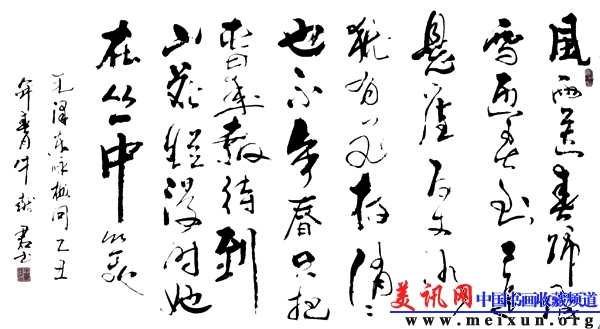 風雨送春歸飛
雪迎春到已是
悬崖百丈冰
犹有花枝俏〻
也不争春只把
春来報待到
山花烂漫时她
在丛中笑
毛泽东咏梅词丑
年牛君书
美讯网中国书画收藏频道
www.meixun.org